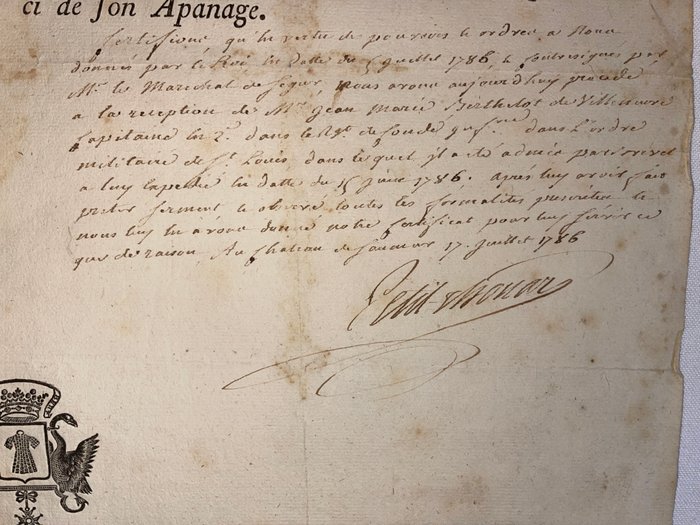 ci de son Apanage.
Certifions qu'en vertu de pouvoirs et ordres a Nous
donnés par le Roi, en datte du juillet 1786, et contresignés par
Mr. le Marechal de Segur, nous avons aujourd'huy procédé
a la reception de Mr. Jean Marie Berthelot de Villeneuve
Capitaine en 2e. dans le Rgt. de Condé inf.rie dans L'ordre
militaire de St. Louis, dans lequel il a eté admis par brevet
a luy expedié en datte du juin 1786. après luy avoir fait
preter serment et observé toutes les formalités prescrites et
nous luy en avons donné notre certificat pour luy servir ce
que de raison. Au chateau de Saumur 17. juillet 1786
Petit thouars